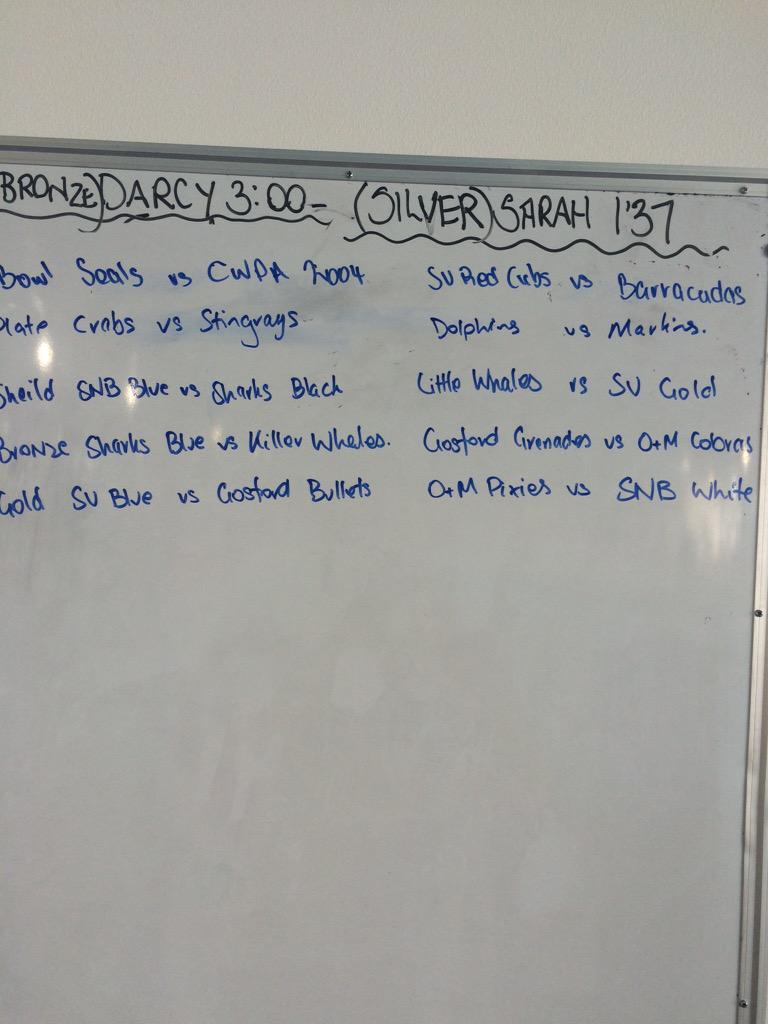 BRONZE) DARCY 3:00- (SILVER) SARAH 1'37
Bowl Seals vs CWPA 2004 SU Red Cubs vs Barracadas
Plate Crabs vs Stingrays Dolphins vs Marlins.
Sheild SNB Blue vs Sharks Black Little Whales vs SU Gold
Bronze Sharks Blue vs Killer Whales. Gosford Grenades vs O+M Cobras
Gold SU Blue vs Gosford Bullets O+M Pixies vs SNB White